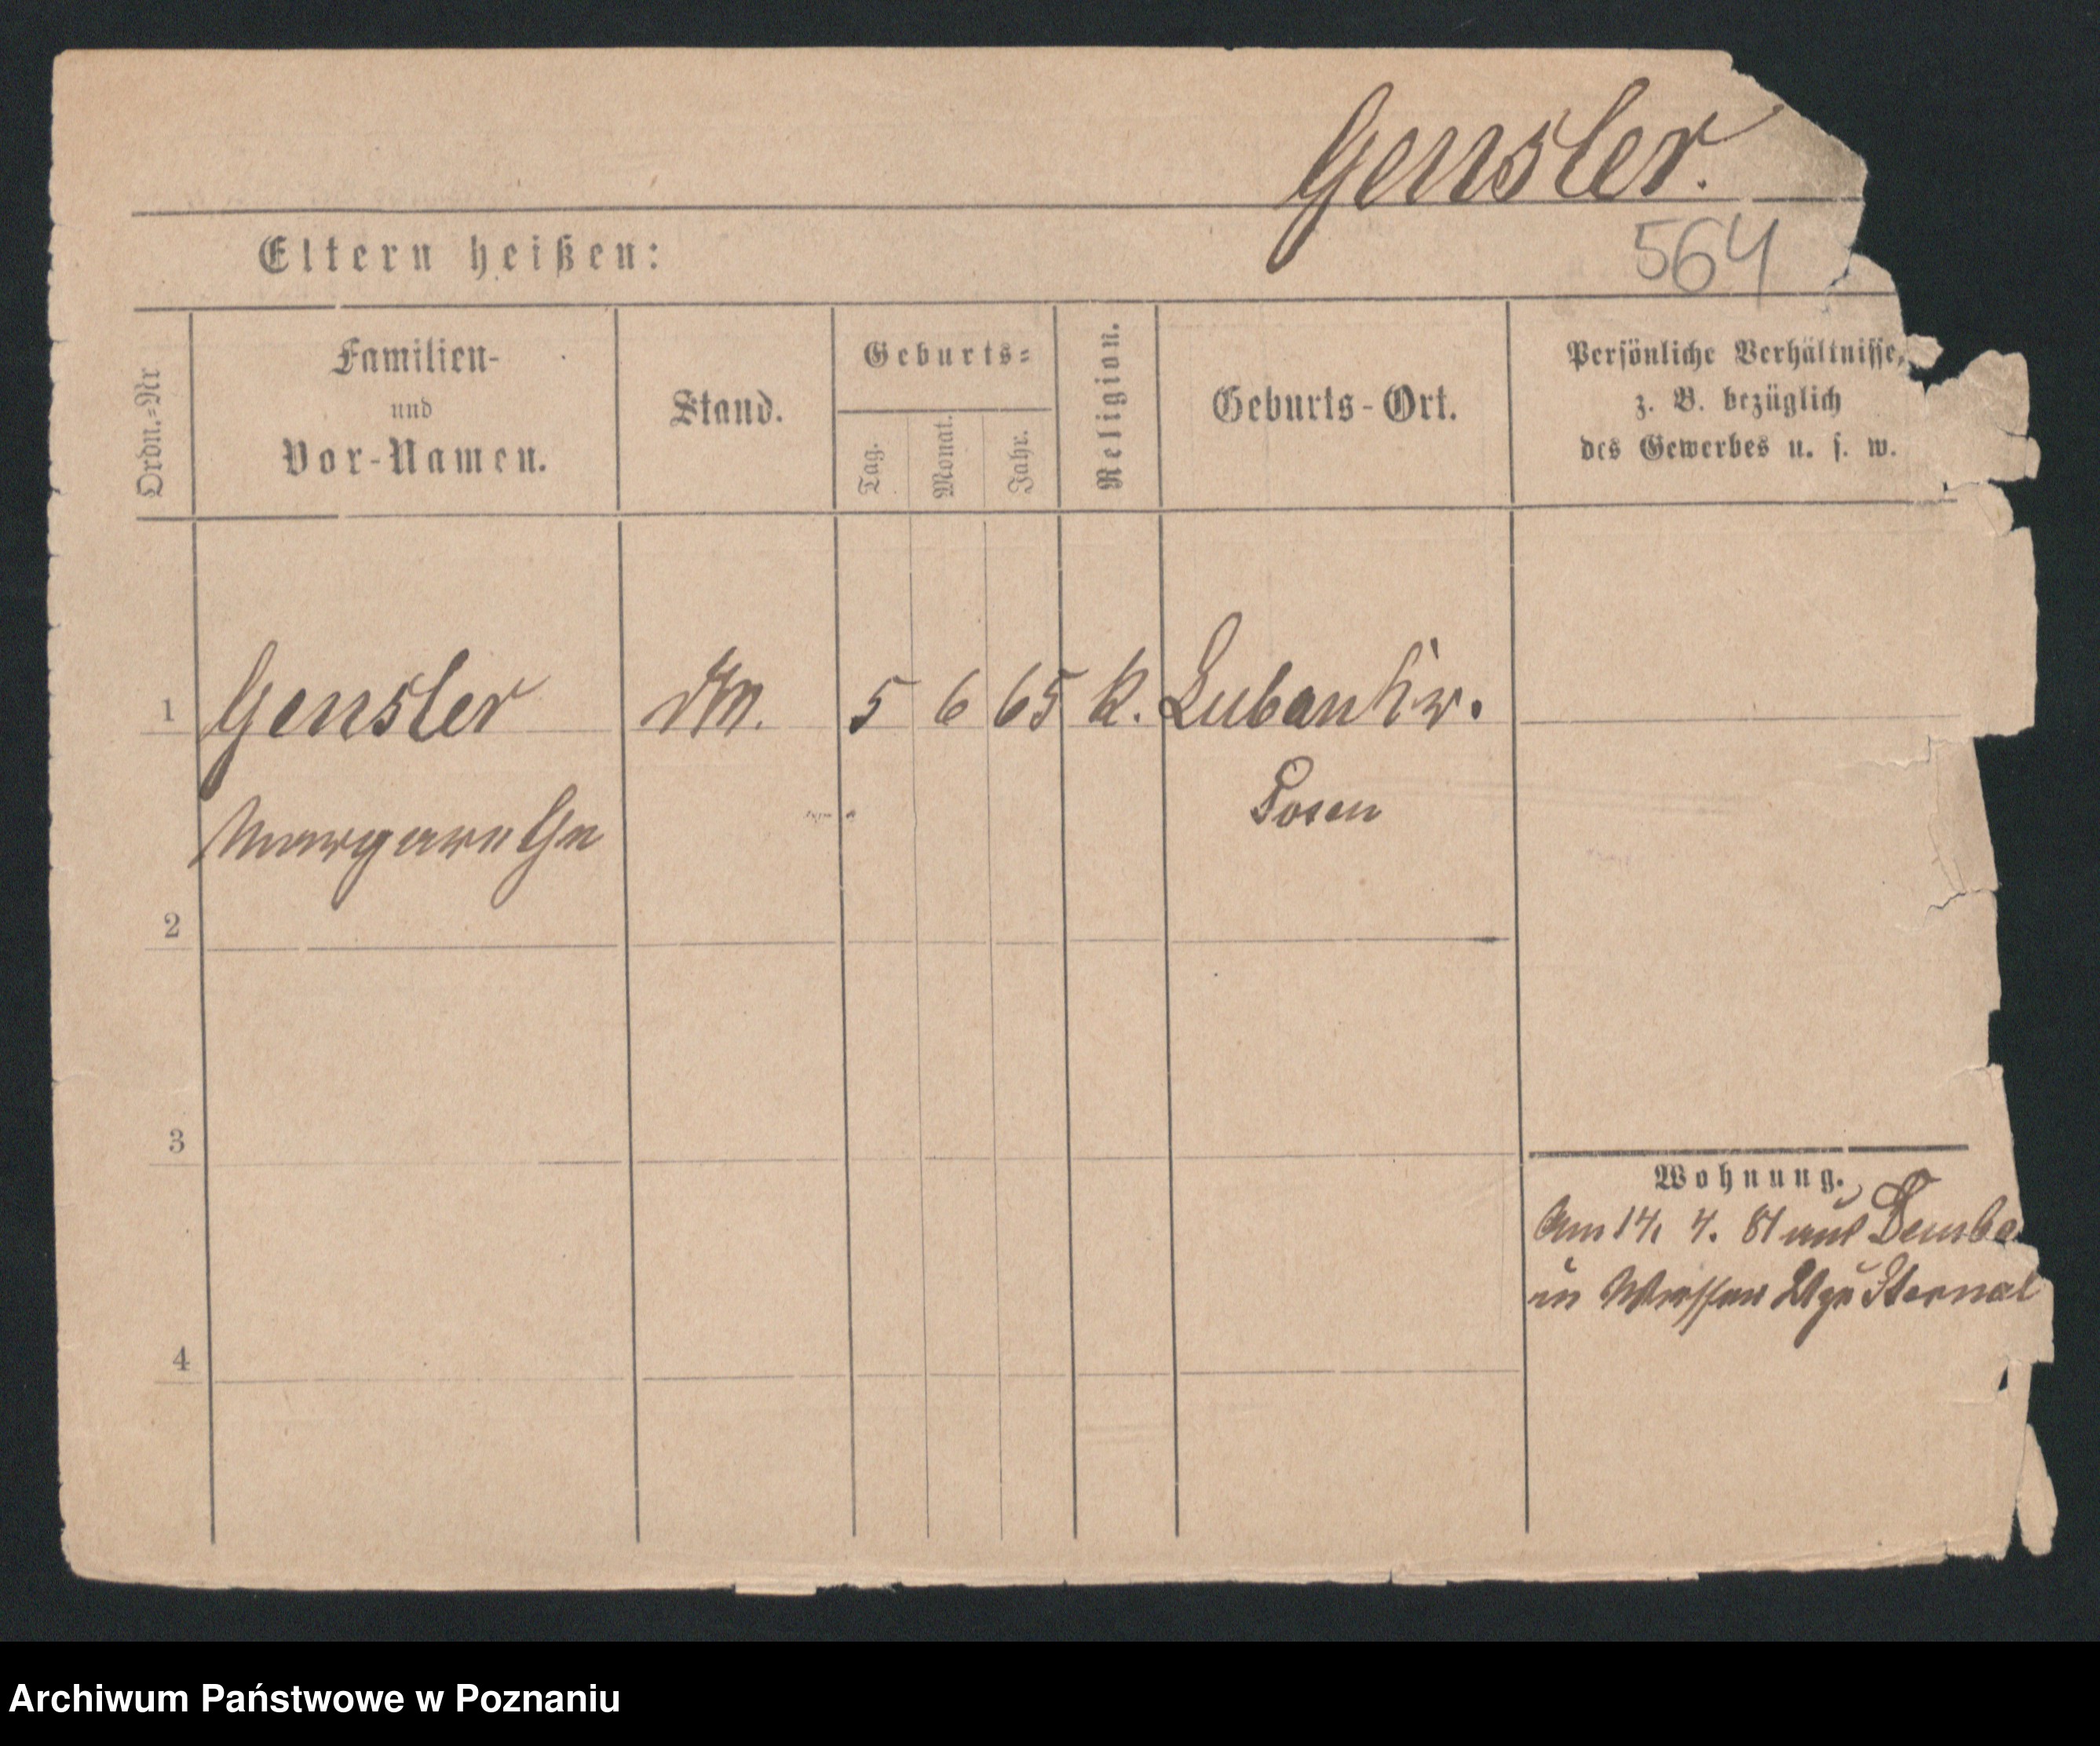 Gensler.
564
Eltern heißen:
Ordn.-Nr
Familien-
und
Vor-Namen.
Stand.
Geburts-
Tag.
Monat.
Jahr.
Religion.
Geburts-Ort.
Persönliche Verhältnisse,
z. B. bezüglich
des Gewerbes u. s. w.
1 Gensler 5 6 65 k. Luban Kr.
Posen
Margarethe
2
3
4
Wohnung.
Am 14. 4. 81 aus
in
Archiwum Państwowe w Poznaniu